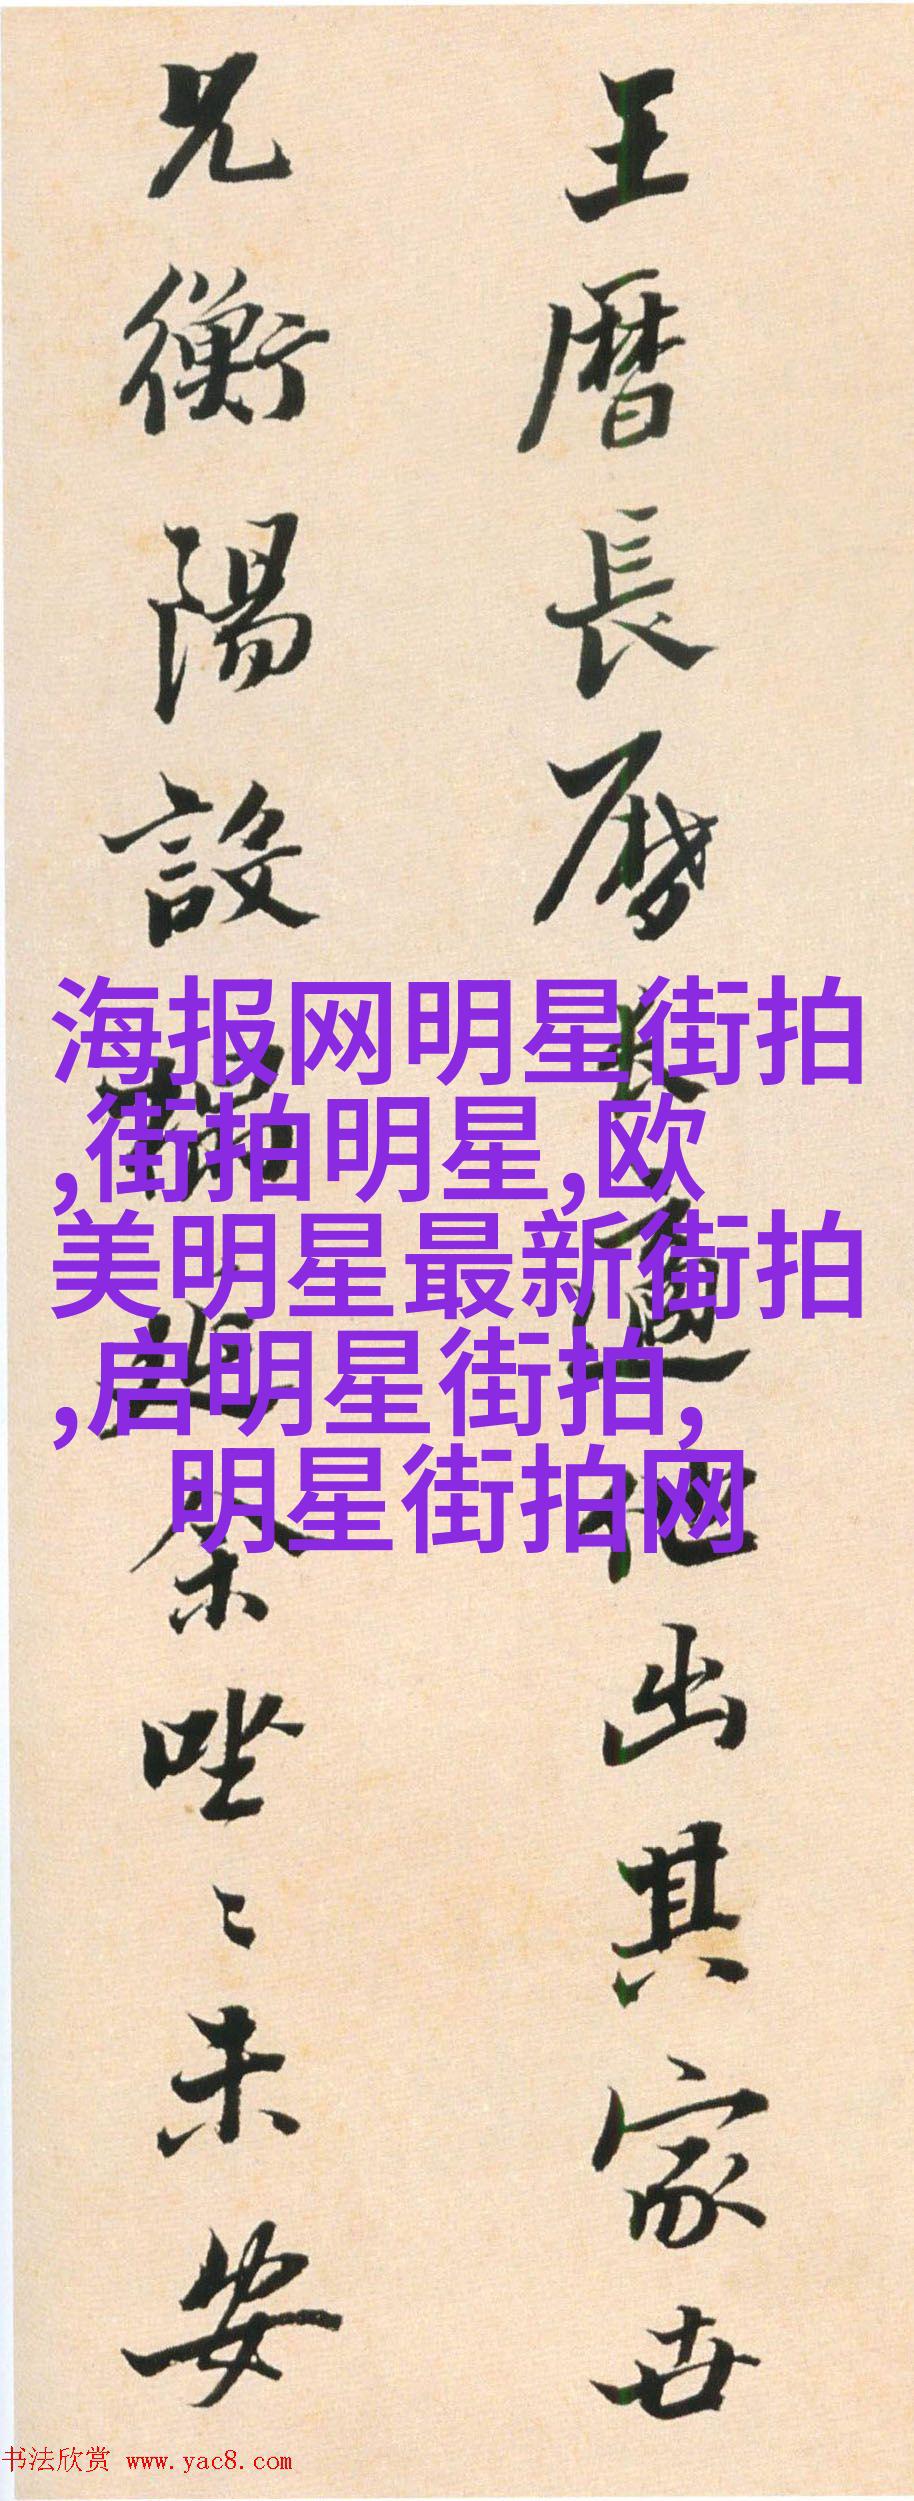 王曆長曆長適他出其家世
兄衡陽設榻延余坐〻未安
海报网明星街拍
,街拍明星,欧
美明星最新街拍
,启明星街拍,
明星街拍网
书法欣赏 www.yac8.com